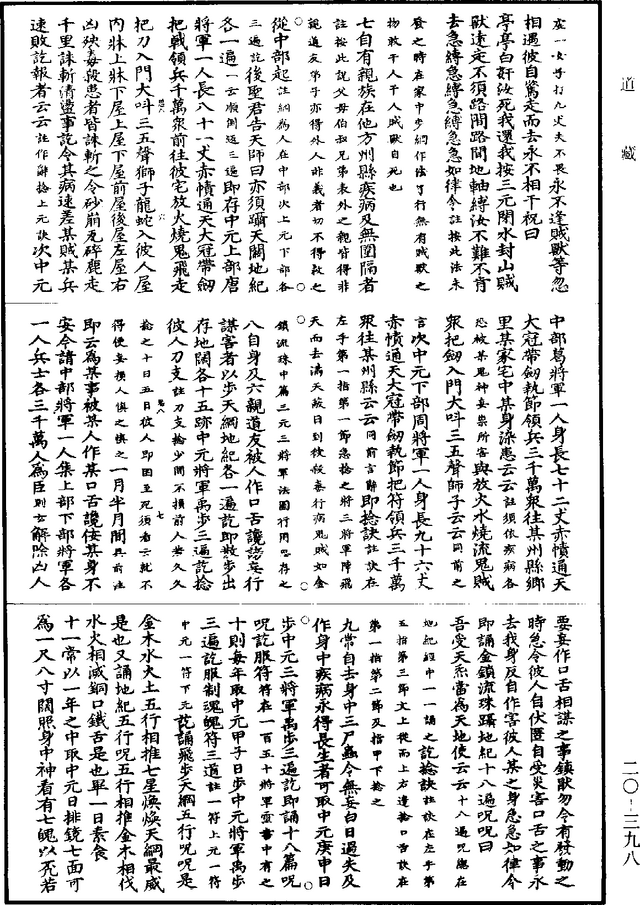 道藏
座一女子打九丈夫不畏永不逢賊獸等忽
相遇彼自驚走而去永不相干祝曰
亭亭白奸汝死我還我按三元閉水封山賊
獸遠走不須路間路間地軸縛汝不難不肯
去急縛急縛急縛急急如律令註按此法未
發之時在家中步綱作法了行無有賊獸之
物敢干人干人賊獸自死也
七自有親族在他方州縣疾病及無圍隔者
註按此説父母伯叔兄弟表外之親皆得非
説道友弟子亦得外人非義者切不得救之
從中部起註綱為人在中部次上元下部各
三遍訖後聖君告天師曰亦須躡天關地紀
各一遍一云順倒逆三遍即存中元上部唐
將軍一人長八十一丈赤幘通天大冠帶劒
把戟領兵千萬衆前往彼宅放火燒鬼飛走
把刀入門大叫三五聲獅子龍蛇入彼人屋
內牀上牀下屋上屋下屋前屋後屋左屋右
凶殃姦殺患者皆誅斬之令砂崩瓦碎走
千里誅斬清盪事訖令其病速差某賊某兵
速敗訖報者云云註作辭捻上元訣次中元
中部葛將軍一人身長七十二丈赤幘通天
大冠帶劒執節領兵三千萬衆往某州縣鄉
里某家宅中某身染患云云註須依疾病各
恐被某鬼神妄祟所害與放火水燒流鬼賊
衆把劒入門大叫三五聲師子云云同前之
言次中元下部周將軍一人身長九十六丈
赤幘通天大冠帶劒執節把符領兵三千萬
衆往某州縣云云同前言辭即捻訣註訣在
左手第一指第一節急捻之將三將軍降飛
天而去滿天蔽日到彼殺妄行病鬼賊如金
鎖流珠中篇三元三將軍法圖行用存之
八自身及六親道友被人作口舌讒謗妄行
謀害者以步天綱地紀各一遍訖即敷步出
存地闊各十五跡中元將軍禹步三遍訖捻
彼人刀支註刀支捻少間不損前人若久久
捻之十日五日彼人即困至死須看云就不
得便妄損人慎之慎之一月半月間具前注
即云為某事被某人作某口舌讒佞某身不
安今請中部將軍一人集上部下部將軍各
一人兵士各三千萬人為臣則云解除凶人
要妄作口舌相謀之事鎮厭勿令有發動之
時急令彼人自伏匿自受災害口舌之事永
去我身反自作害彼人某之身急急如律令
即誦金鎖流珠躡地紀十八遍呪呪曰
吾受天系當為天地使云云十八遍呪總在
地紀經中一一誦之訖捻訣註訣在左手第
五指第三節文上從而上右逢捻口舌訣在
第一指第二節及指甲下捻之
九常自去身中三尸蟲令無妄白日過失及
作身中疾病永得長生者可取中元庚申日
步中元三將軍禹步三遍訖即誦十八篇呪
呪訖服符符在一百五十將軍靈書中有之
十則每年取中元甲子日步中元將軍禹步
三遍訖服制魂魄符三道註一符上元一符
中元一符下元訖誦飛步天綱五行呪呪是
金木水火土五行相推七星煥煥天綱最威
是也又誦地紀五行呪五行相推金木相伐
水火相滅銅口鐵舌是也單一日素食
十一常以一年之中取中元日排鏡七面可
為一尺八寸闊照身中神看有七魄以死若
二〇—三九八